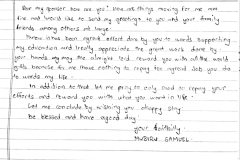 Dear my sponsor how are you? How are things moving for me am
fine and would like to send my greetings to you and your family
friends, among others at large.
There is an agreat effort done by you to wards supporting
my education and really appreciate the great work done by
your hands my may the almight lord reward you with all the world
gifts because for me have nothing to repay the agreat Job you do
to wards my life.
In addition to that let me pray to only God to repay your
effects and reward you with what you want in life.
Let me conclude by wishing you happy stay.
Be blessed and have agood day
your faithfully
MUBIRU SAMUEL